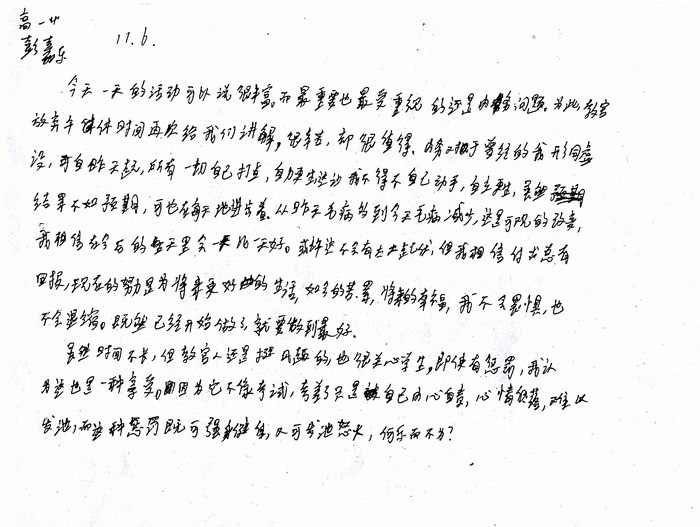 高一
彭嘉乐
11.6.
今天一天的活动可以说很丰富。而最重要也最受重视的还是内务问题。为此,教官
放弃午休时间再次给我们讲解,很辛苦,却很值得。内务对于曾经的我形同虚
设,可自昨天起,所有一切自己打点,自力更生迫使我不得不自己动手,自主,虽然
结果不如预期,可也在每天地进步着。从昨天毛病多到今天毛病减少,这是可观的改变,
我相信在今后的天里会一天比一天好。或许还不会有太大起伏,但我相信付出总有
回报,现在的努力是为将来更好的生活,如今的苦累,将来的幸福,我不会畏惧,也
不会退缩。既然已经开始做了,就要做到最好。
虽然时间不长,但教官人还是挺风趣的,也很关心学生,即使有惩罚,我认
为这也是一种享受。因为它不像考试,考差了只是自己内心自责,心情低落,难以
发泄,而这种惩罚既可强身健体,又可发泄怒火,何乐而不为?